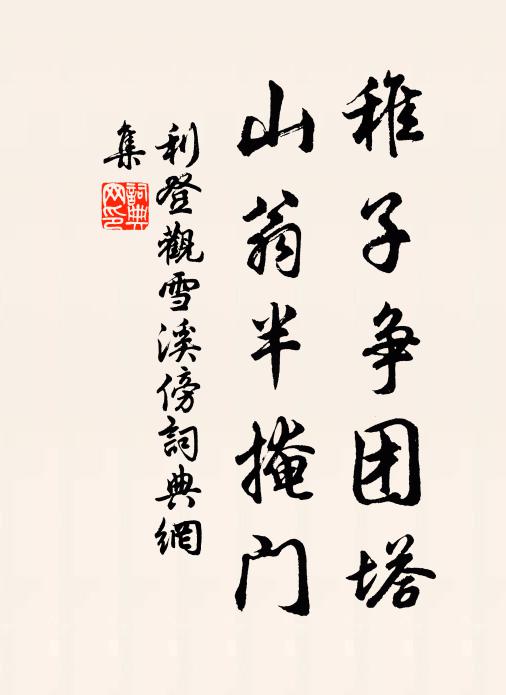 稚子争团塔
山翁半掩门
利登觀雪溪傍詞典網
集
詞典網印